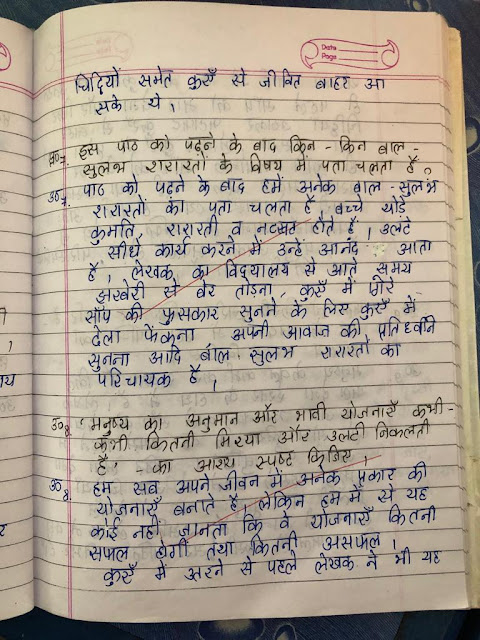 Date
Page
चिट्ठियों समेत कुएँ से जीवित बाहर आ
सके थे।
प्र०7 इस पाठ को पढ़ने के बाद किन - किन बाल -
सुलभ शरारतों के विषय में पता चलता है?
उ०7 पाठ को पढ़ने के बाद हमें अनेक बाल - सुलभ
शरारतों का पता चलता है बच्चे थोड़े
कुमति, शरारती व नटखट होते हैं। उलटे
सीधे कार्य करने में उन्हें आनंद आता
है, लेखक का विद्यालय से आते समय
झरबेरी से बेर तोडना, कुएँ में गिरे
साँप की फुसकार सुनने के लिए कुएँ में
ढेला फेंकना अपनी आवाज की प्रतिध्वनि
सुनना आदि बाल सुलभ शरारतों का
परिचायक है,
उ०8 'मनुष्य का अनुमान और भावी योजनाएँ कभी -
कभी कितनी मिथ्या और उलटी निकलती
हैं' - का आशय स्पष्ट किजिए
उ०8 हम सब अपने जीवन में अनेक प्रकार की
योजनाएँ बनाते है, लेकिन हम में से यह
कोई नहीं जानता कि वे योजनाएँ कितनी
सफल होगी तथा कितनी असफल।
कुएँ में उतरने से पहले लेखक ने भी यह